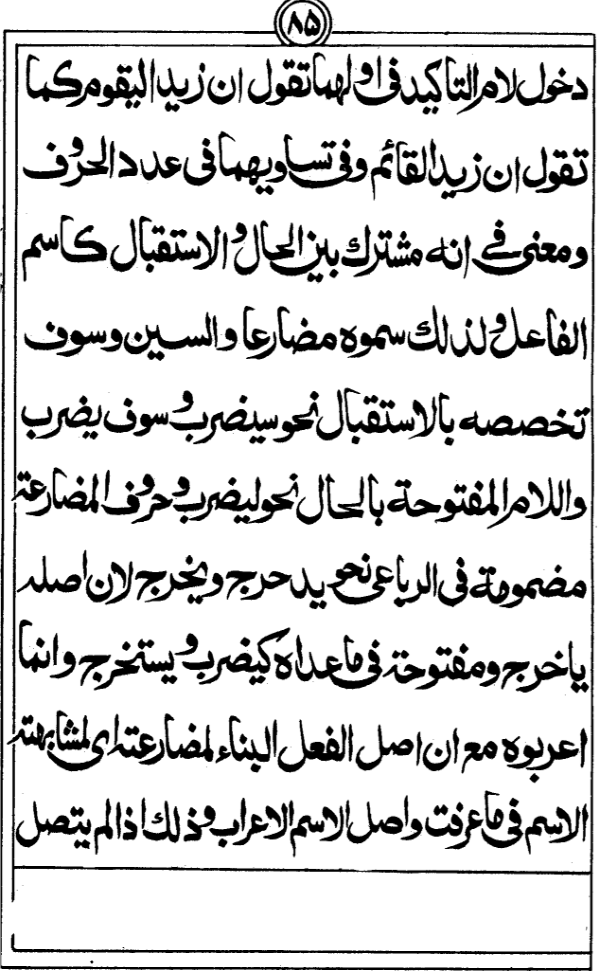 ٨٥
دخول لام التاكيد فى اولهما تقول ان زيدا ليقوم كما
تقول ان زيدا لقائم وفى تساويهما فى عدد الحروف
ومعنى فى انه مشترك بين الحال والاستقبال كاسم
الفاعل ولذلك سموه مضارعا والسين وسوف
تخصصه بالاستقبال نحو سيضرب وسوف يضرب
واللام المفتوحة بالحال نحو ليضرب وحروف المضارعة
مضمومة فى الرباعى نحو يدحرج ويخرج لان اصله
ياخرج ومفتوحة فى ما عداه كيضرب ويستخرج وانما
اعربوه مع ان اصل الفعل البناء لمضارعته اى لمشابهته
الاسم فى ما عرفت واصل الاسم الاعراب وذلك اذا لم يتصل